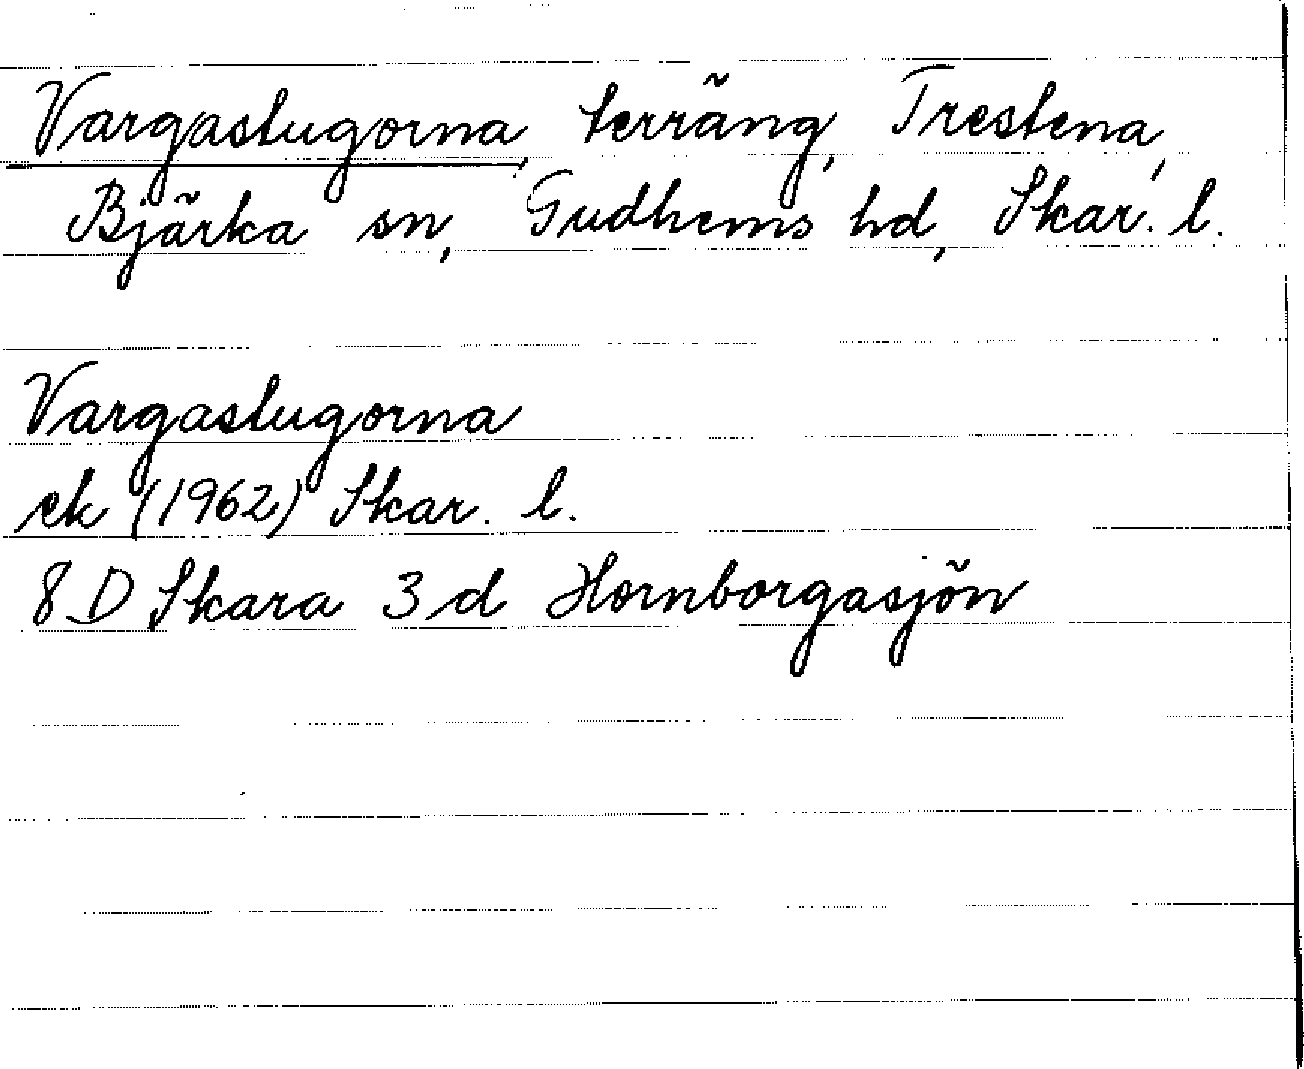 Vargastugorna, terräng, Trestena,
Bjärka sn, Gudhems hd, Skar. l.
Vargastugorna
ek (1962) Skar. l.
8 D Skara 3 d Hornborgasjön